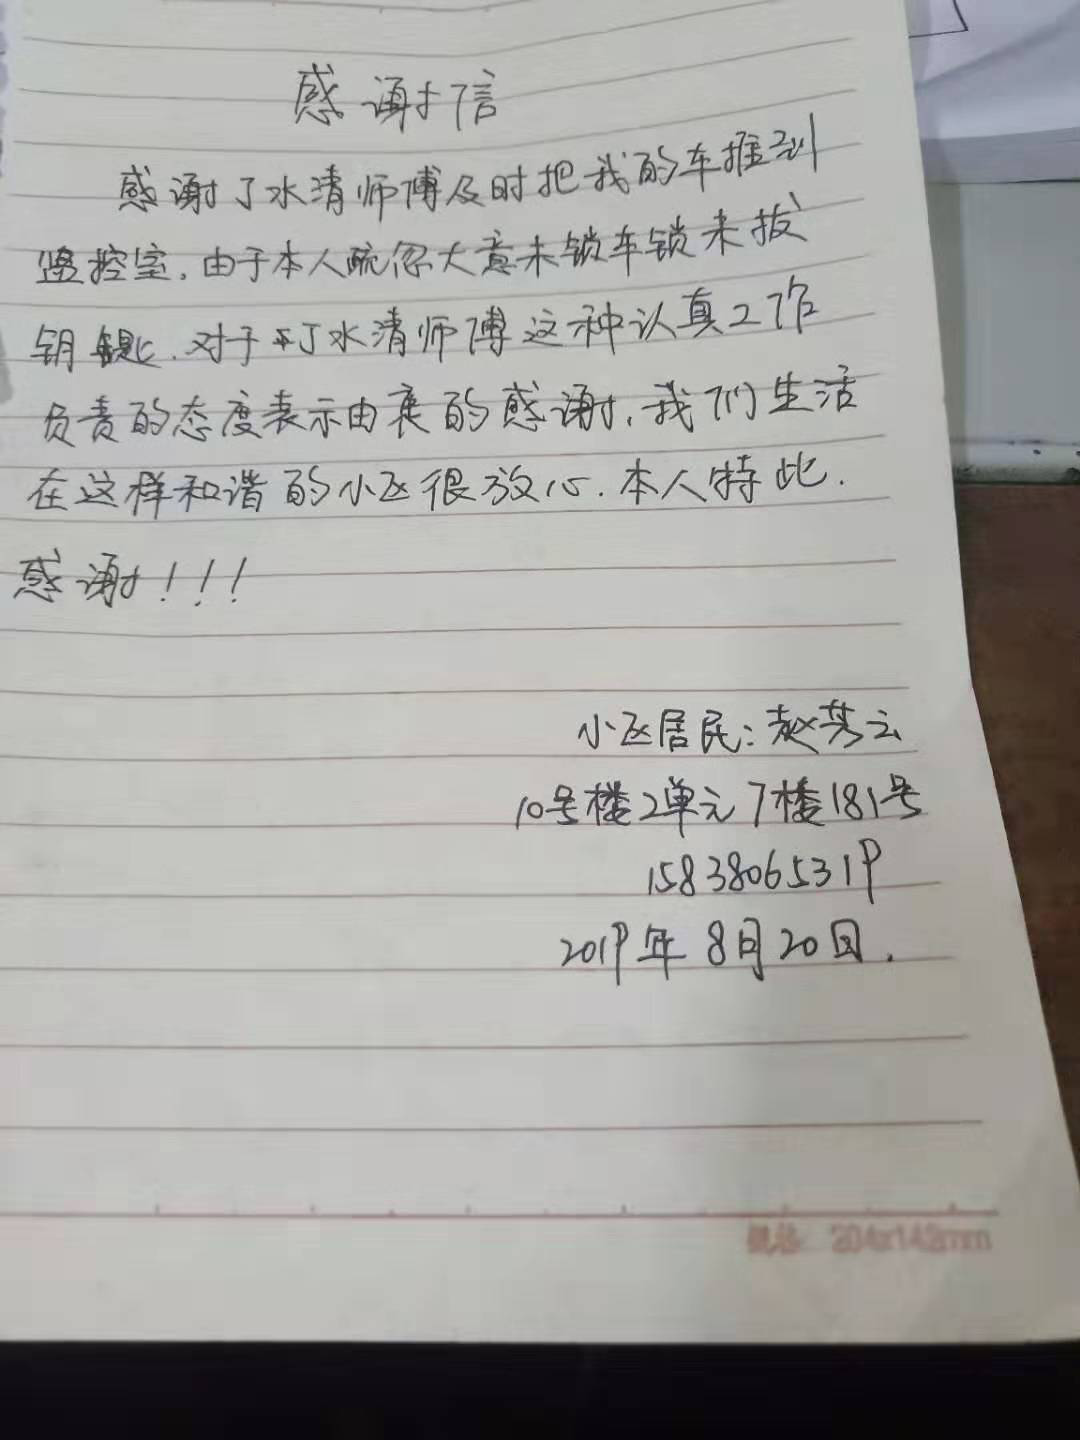 感谢信
感谢丁水清师傅及时把我的车推到
监控室,由于本人疏忽大意未锁车锁未拔
钥匙.对于丁水清师傅这种认真工作
负责的态度表示由衷的感谢,我们生活
在这样和谐的小区很放心.本人特此.
感谢!!!
小区居民:赵芳云
10号楼2单元7楼181号
15838065319
2019年8月20日.
规格 204x142mm